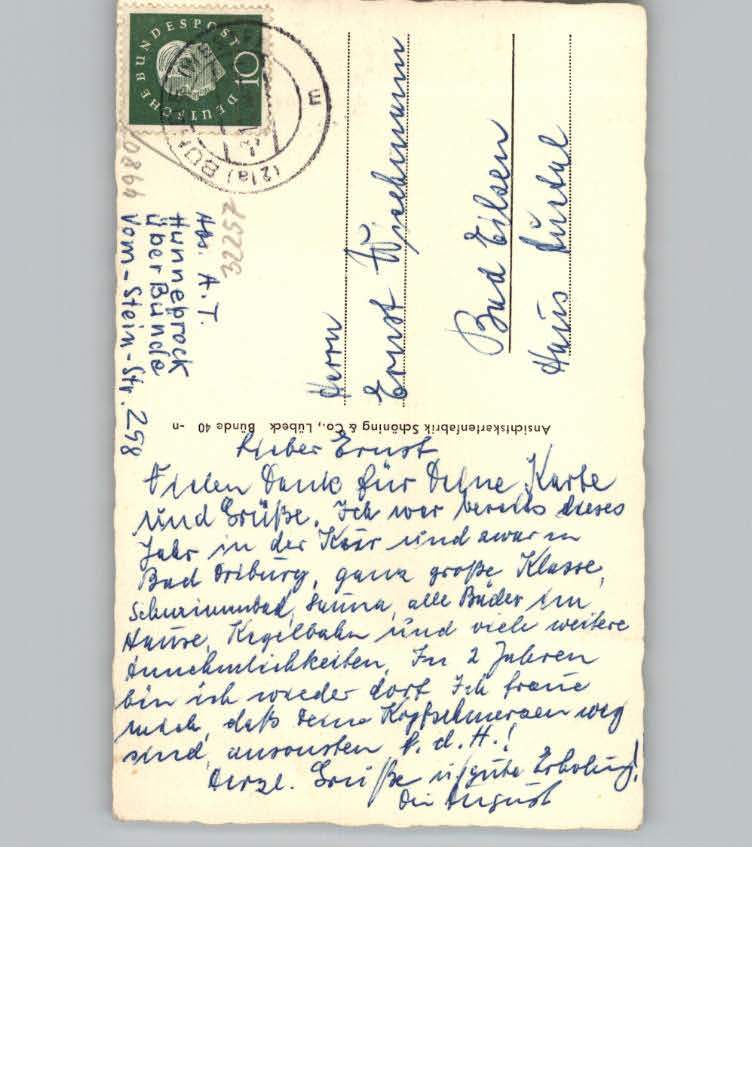 DEUTSCHE BUNDESPOST
10
(21a) BÜN
m
0864
32257
Abs. A. T.
Hunnebrock
über Bünde
Vom-Stein-Str. 258
Herrn
Ernst Wiechmann
Bad Eilsen
Haus
Ansichtskartenfabrik Schöning & Co., Lübeck Bünde 40 -n
Lieber Ernst
Vielen Dank für Deine Karte
und Grüße. Ich war bereits dieses
Jahr in der Kur und zwar in
Bad Driburg, ganz große Klasse,
Schwimmbad, Sauna, alle Bäder im
Hause, Kegelbahn und viele weitere
Annehmlichkeiten. In 2 Jahren
bin ich wieder dort. Ich freue
mich, daß Deine Kopfschmerzen weg
sind, ansonsten K. d. H.!
Herzl. Grüße u. gute Erholung!
Dein August